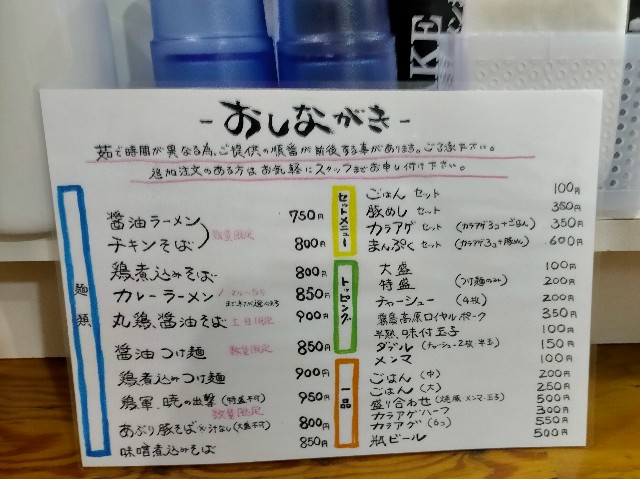 - おしながき -
茹で時間が異なる為、ご提供の順番が前後する事があります。ご了承下さい。
追加注文のある方はお気軽にスタッフまでお申し付け下さい。
麺類
醤油ラーメン 750円
チキンそば 800円
数量限定
鶏煮込みそば 800円
カレーラーメン 850円
丸鶏、醤油そば 土日限定 900円
醤油つけ麺 数量限定 850円
鶏煮込みつけ麺 900円
鶏軍、暁の出撃 (特盛不可) 950円
数量限定
あぶり豚そば ※汁なし(大盛不可) 800円
味噌煮込みそば 850円
セットメニュー
ごはん セット 100円
豚めし セット 350円
カラアゲ セット (カラアゲ3コ+ごはん) 350円
まんぷく セット (カラアゲ3コ+豚めし) 600円
トッピング
大盛 100円
特盛 (つけ麺のみ) 200円
チャーシュー (4枚) 200円
霧島高原ロイヤルポーク 350円
半熟、味付玉子 100円
ダブル (チャーシュー2枚 半玉) 150円
メンマ 100円
一品
ごはん (中) 200円
ごはん (大) 250円
盛り合わせ (焼豚・メンマ・玉子) 500円
カラアゲハーフ 300円
カラアゲ (6コ) 550円
瓶ビール 500円